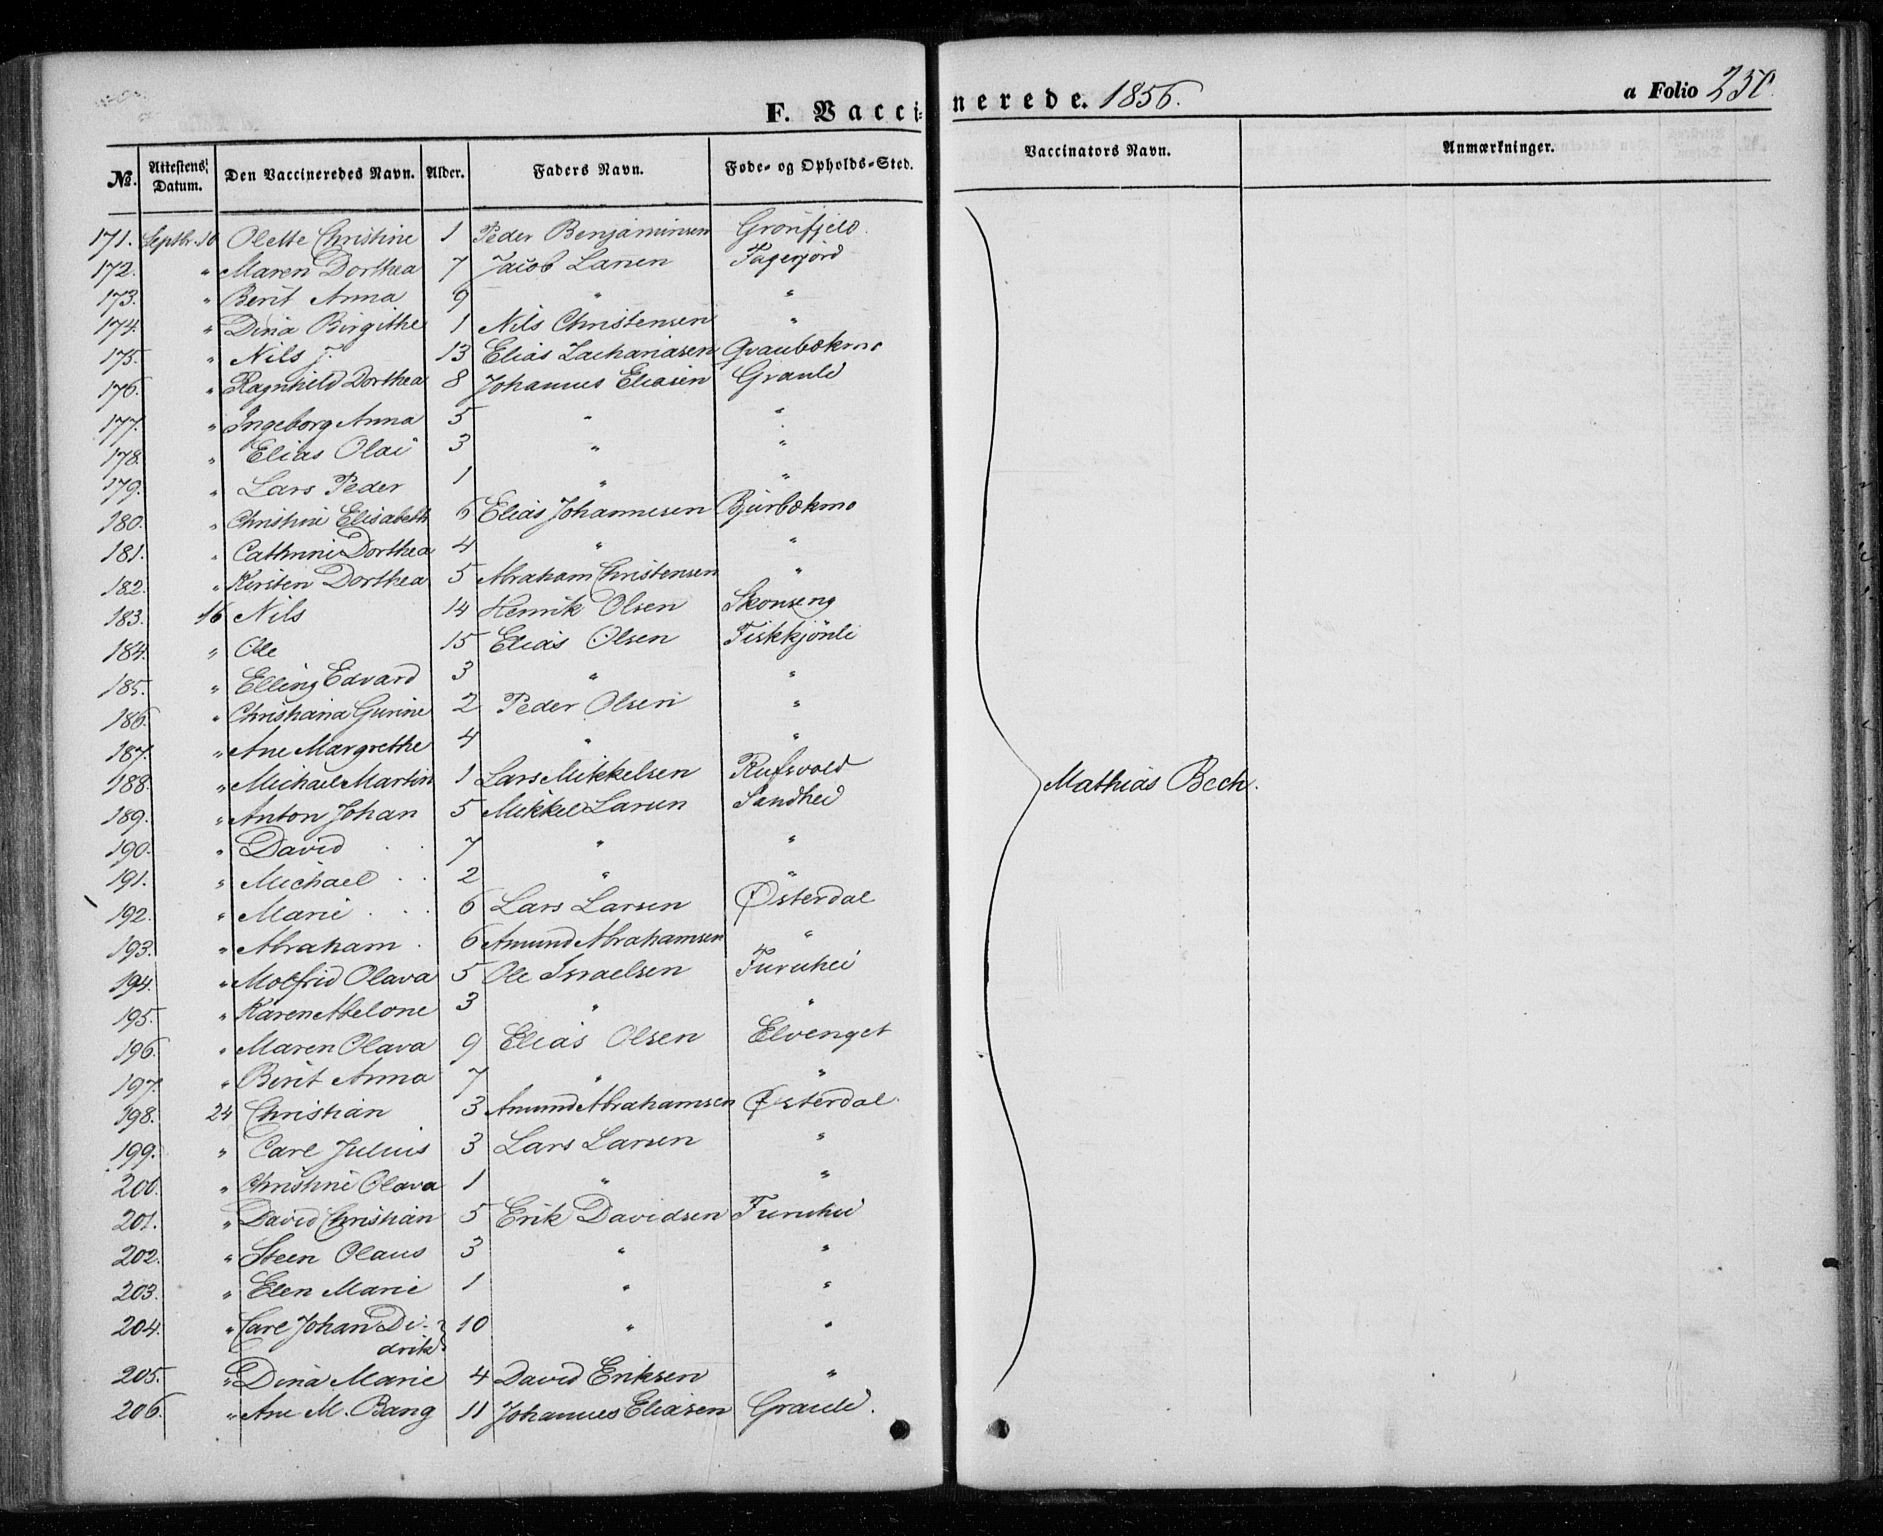 F. Vaccinerede. 1856. a Folio 250.
№. Attestens Datum. Den Vaccineredes Navn. Alder. Faders Navn. Føde- og Opholds-Sted. Vaccinators Navn. Anmærkninger.
171. Septbr. 10 Olette Christine 1 Peder Benjaminsen Grønfjeld.
172. " Maren Dorthea 7 Jacob Larsen Fagerjord
173. " Berit Anna 9 " "
174. " Dina Birgithe 1 Nils Christensen "
175. " Nils J. 13 Elias Zachariasen Gvaubækmo
176. " Ragnhild Dorthea 8 Johannes Eliasen Graule
177. " Ingeborg Anna 5 " "
178. " Elias Olai 3 " "
179. " Lars Peder 1 " "
180. " Christine Elisabeth 6 Elias Johannesen Bjurbækmo
181. " Cathrine Dorthea 4 " "
182. " Kirsten Dorthea 5 Abraham Christensen "
183. 16 Nils 14 Henrik Olsen Skonseng
184. " Ole 15 Elias Olsen Fiskkjönli
185. " Elling Edvard 3 " "
186. " Christiana Gurine 2 Peder Olsen "
187. " Ane Margrethe 4 " "
188. " Michael Martin 1 Lars Mikkelsen Rufsvold
189. " Anton Johan 5 Mikkel Larsen Sandhei
190. " David 7 " "
191. " Michael 2 " "
192. " Marie 6 Lars Larsen Østerdal
193. " Abraham 6 Amund Abrahamsen "
194. " Molfrid Olava 5 Ole Israelsen Furuhei
195. " Karen Abelone 3 " "
196. " Maren Olava 9 Elias Olsen Elvenget
197. " Berit Anna 7 " "
198. 24 Christian 3 Amund Abrahamsen Østerdal.
199. " Carl Julius 3 Lars Larsen "
200. " Christine Olava 1 " "
201. " David Christian 5 Erik Davidsen Furuhei
202. " Steen Olaus 3 " "
203. " Elen Marie 1 " "
204. " Carl Johan Di- 10 " "
drik
205. " Dina Marie 4 David Eriksen "
206. " Ane M. Bang 11 Johannes Eliasen Graule.
Mathias Bech.